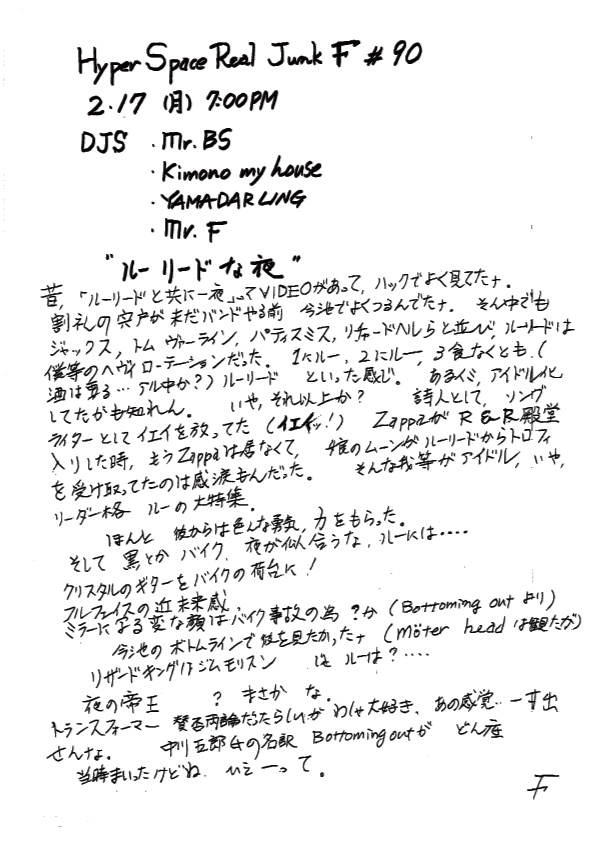 Hyper Space Real Junk F #90
2.17 (月) 7:00PM
DJS ・Mr.BS
・Kimono my house
・YAMADARLING
・Mr. F
"ルーリードな夜"
昔,「ルーリードと共に一夜」ってVIDEOがあって, ハックでよく見てたナ.
割礼の宍戸が未だバンドやる前 今池でよくつるんでたナ. そん中でも
ジャックス, トム ヴァーライン, パティスミス, リチャードヘルらと並び, ルーリードは
僕等のヘヴィローテーションだった. 1にルー, 2にルー, 3食なくとも, (
酒は要る… アル中か?) ルーリード といった感じ. あるイミ, アイドル化
してたかも知れん. いや, それ以上か? 詩人として, ソング
ライターとしてイエイを放ってた (イエイッ!) Zappaが R&R殿堂
入りした時, もうZappaは居なくて, 娘のムーンがルーリードからトロフィ
を受け取ってたのは感涙もんだった. そんな我等がアイドル, いや,
リーダー格 ルーの大特集.
ほんと 彼からは色んな勇気, 力をもらった.
そして 黒とか バイク, 夜が似合うな, ルーには‥‥
クリスタルのギターをバイクの荷台に!
フルフェイスの近未来感.
ミラーによる変な顔はバイク事故の為?か (Bottoming out より)
今池のボトムラインで彼を見たかったナ (Möter head は観たが)
リザードキングはジムモリスン ルーは?‥‥
夜の帝王 ? まさか な.
トランスフォーマー 賛否両論だったらしいが わしゃ大好き, あの感覚… 一寸出
せんナよ. 中川五郎氏の名訳 Bottoming outが どん座
当時まいったけどね. ひえーって.
F